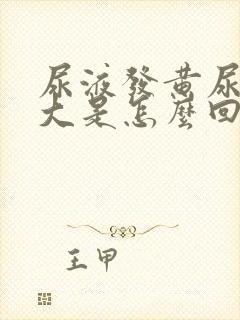 尿液發黄尿
大是怎麼回
王甲